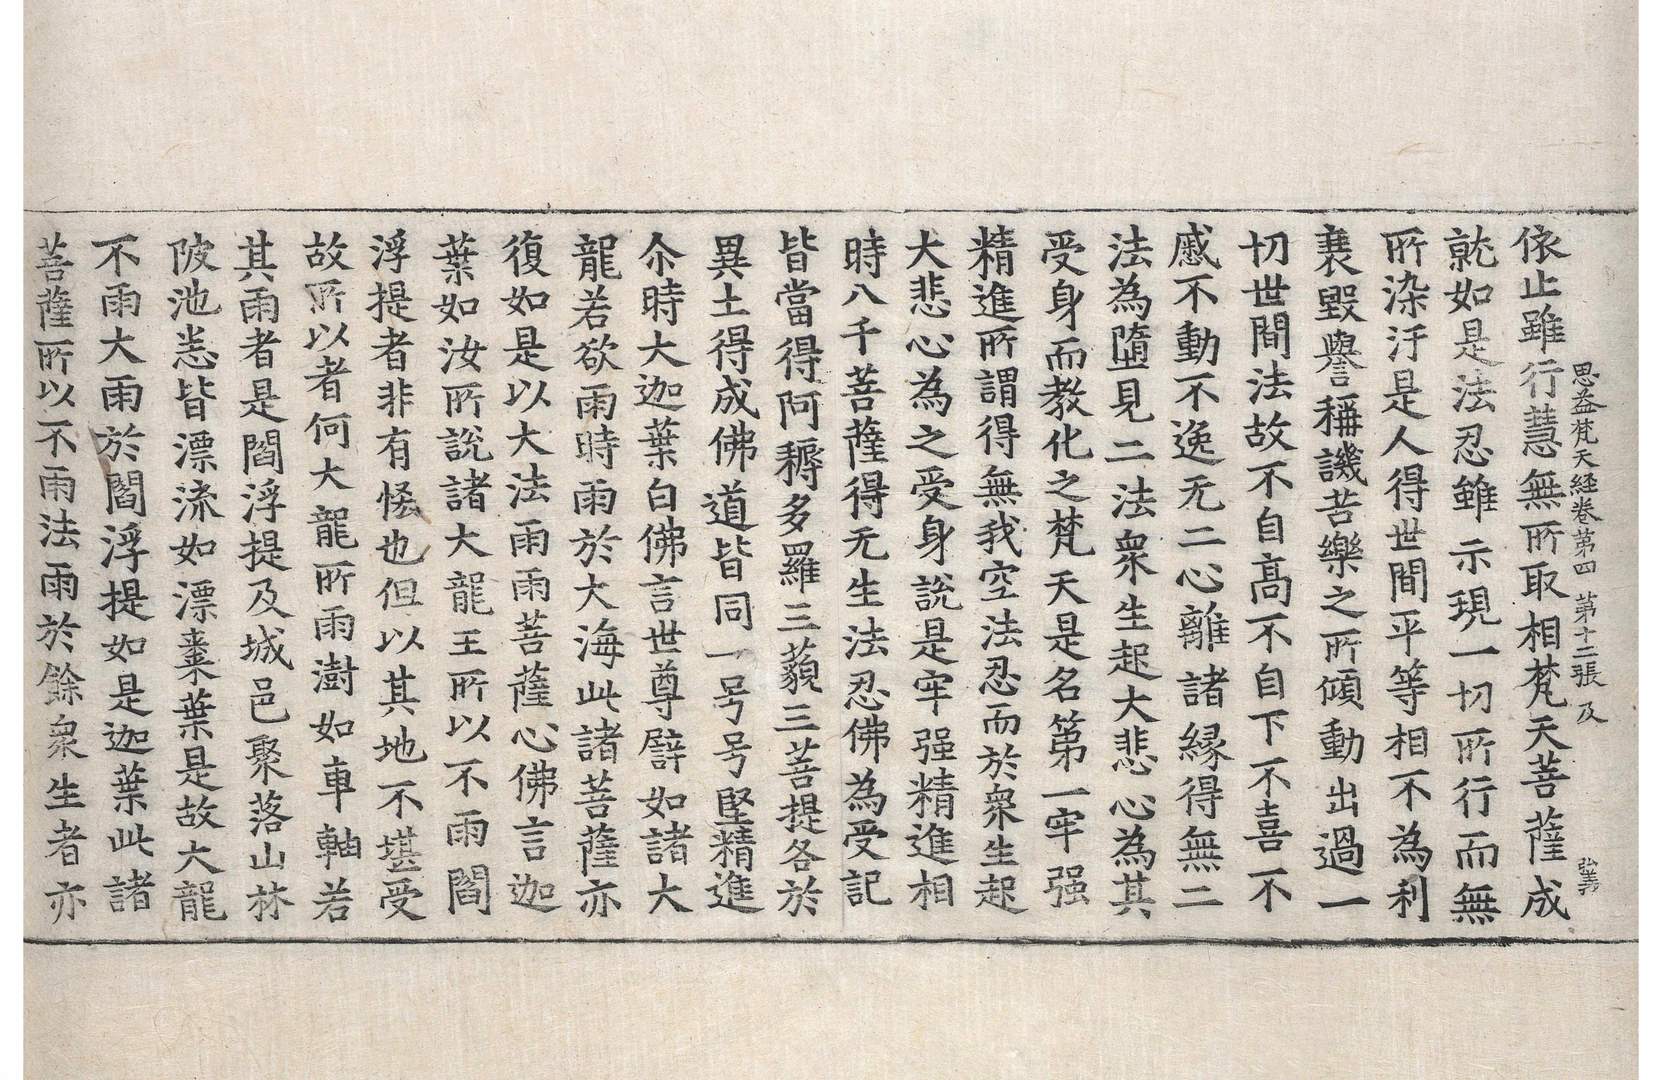 依止雖行慧無所取相梵天菩薩成
思益梵天經卷第四 第十二張 及
就如是法忍雖示現一切所行而無
所染汙是人得世間平等相不為利
衰毀譽稱譏苦樂之所傾動出過一
切世間法故不自高不自下不喜不
慼不動不逸无二心離諸緣得無二
法為墮見二法衆生起大悲心為其
受身而教化之梵天是名第一牢强
精進所謂得無我空法忍而於衆生起
大悲心為之受身說是牢强精進相
時八千菩薩得无生法忍佛為受記
皆當得阿耨多羅三藐三菩提各於
異土得成佛道皆同一号号堅精進
尒時大迦葉白佛言世尊譬如諸大
龍若欲雨時雨於大海此諸菩薩亦
復如是以大法雨雨菩薩心佛言迦
葉如汝所說諸大龍王所以不雨閻
浮提者非有恡也但以其地不堪受
故所以者何大龍所雨澍如車軸若
其雨者是閻浮提及城邑聚落山林
陂池悉皆漂流如漂棗葉是故大龍
不雨大雨於閻浮提如是迦葉此諸
菩薩所以不雨法雨於餘衆生者亦